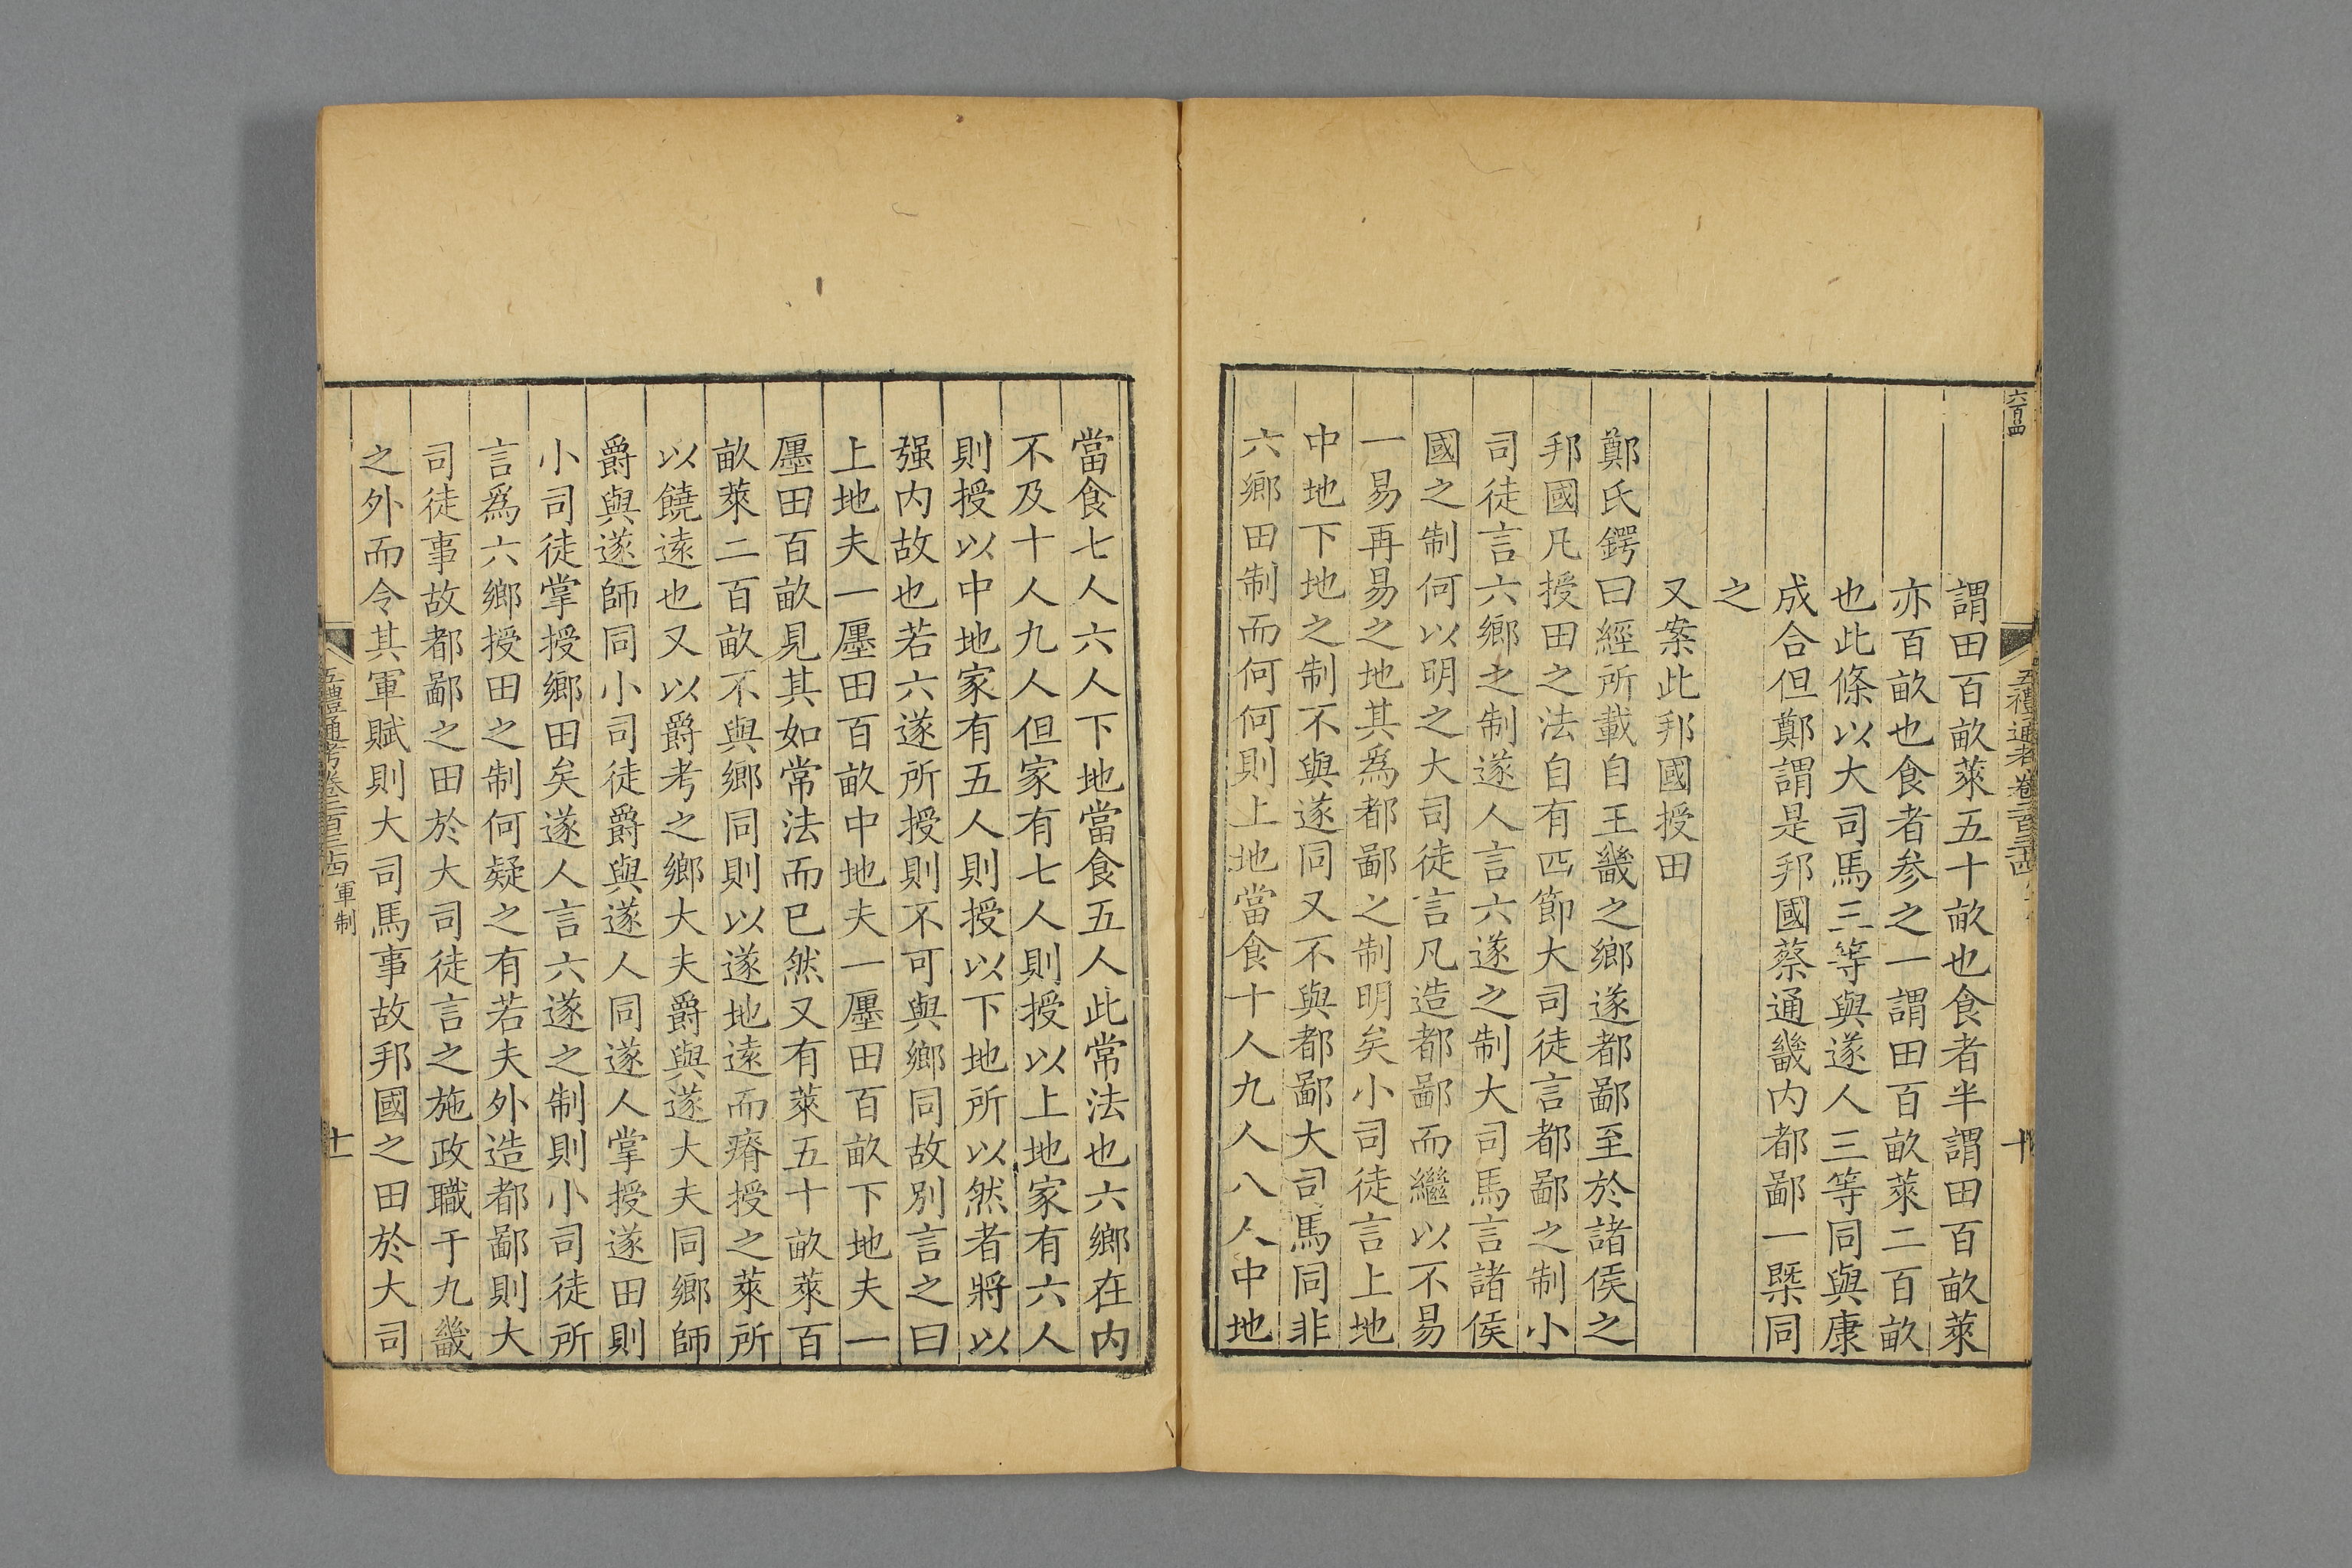 六百四
五禮通考卷二百三十四
十
謂田百畝萊五十畝也食者半謂田百畝萊
亦百畝也食者参之一謂田百畝萊二百畝
也此條以大司馬三等與遂人三等同與康
成合但鄭謂是邦國蔡通畿内都鄙一槩同
之
又案此邦國授田
鄭氏鍔曰經所載自王畿之鄉遂都鄙至於諸侯之
邦國凡授田之法自有四節大司徒言都鄙之制小
司徒言六鄉之制遂人言六遂之制大司馬言諸侯
國之制何以明之大司徒言凡造都鄙而繼以不易
一易再易之地其為都鄙之制明矣小司徒言上地
中地下地之制不與遂同又不與都鄙大司馬同非
六鄉田制而何何則上地當食十人九人八人中地
當食七人六人下地當食五人此常法也六鄉在内
不及十人九人但家有七人則授以上地家有六人
則授以中地家有五人則授以下地所以然者將以
强内故也若六遂所授則不可與鄉同故別言之曰
上地夫一廛田百畝中地夫一廛田百畝下地夫一
廛田百畝見其如常法而已然又有萊五十畝萊百
畝萊二百畝不與鄉同則以遂地遠而瘠授之萊所
以饒遠也又以爵考之鄉大夫爵與遂大夫同鄉師
爵與遂師同小司徒爵與遂人同遂人掌授遂田則
小司徒掌授鄉田矣遂人言六遂之制則小司徒所
言爲六鄉授田之制何疑之有若夫外造都鄙則大
司徒事故都鄙之田於大司徒言之施政職于九畿
之外而令其軍賦則大司馬事故邦國之田於大司
五禮通考卷二百三十四 軍制
十一